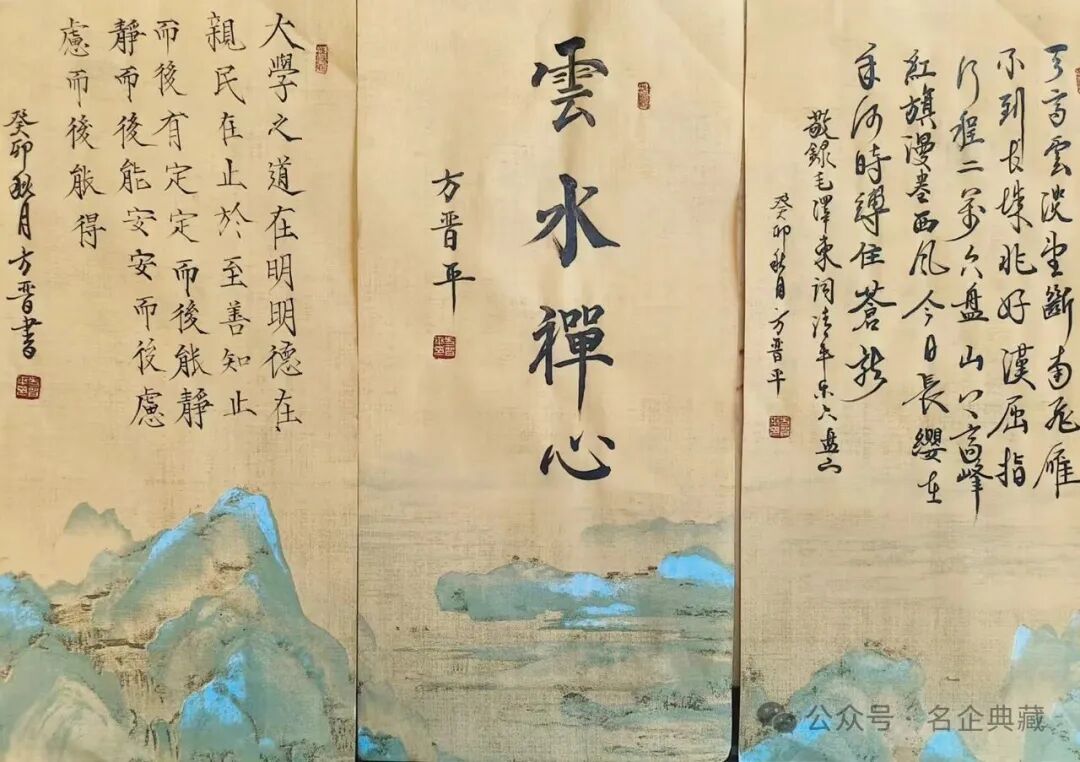 天高雲淡望斷南飛雁
不到長城非好漢屈指
行程二萬六盤山上高峰
紅旗漫卷西風今日長纓在
手何時縛住蒼龍
敬錄毛澤東詞清平乐六盘山
癸卯秋月方晋平
雲水禪心
方晋平
大學之道在明明德在
親民在止於至善知止
而後有定定而後能靜
靜而後能安安而後慮
慮而後能得
癸卯秋月方晋書
公众号·名企典藏